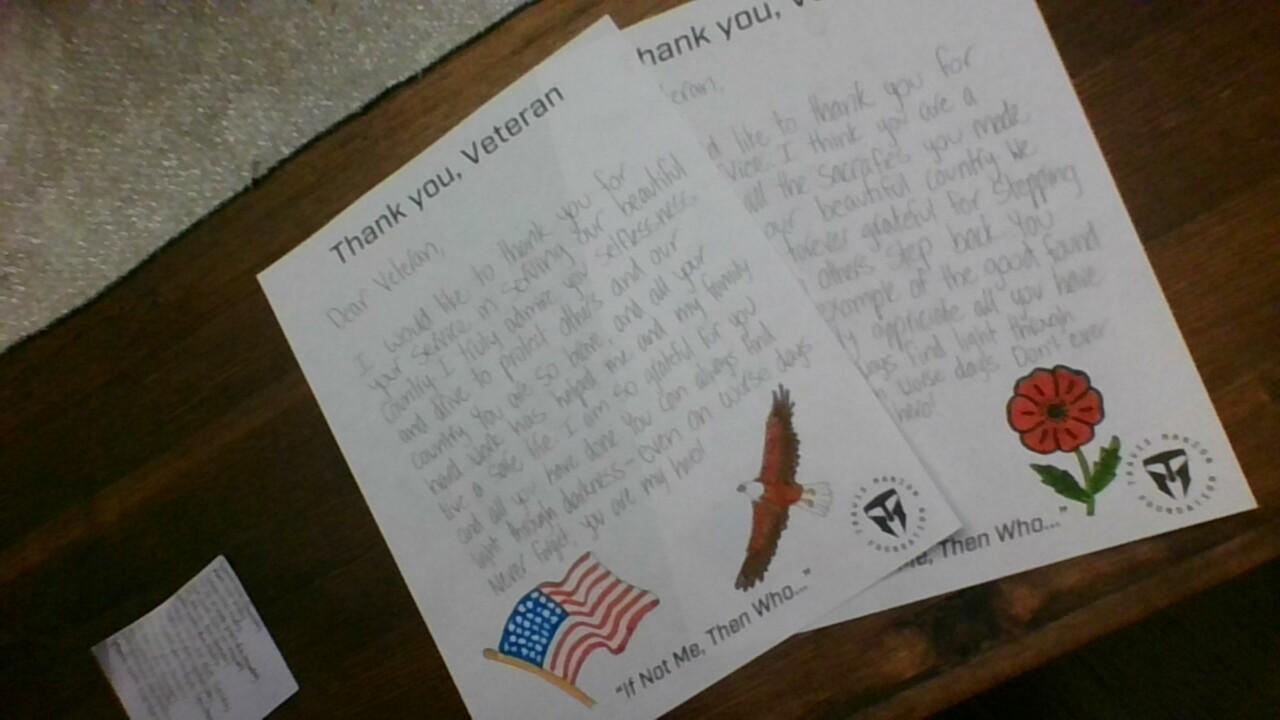 Thank you, Veteran
Dear Veteran,
I would like to thank you for
your service in serving our beautiful
country I truly admire your selflessness
and drive to protect others and our
country You are so brave, and all your
hard work has helped me and my family
live a safe life I am so grateful for you
and all you have done You can always find
light through darkness - even on worse days
Never forget, you are my hero!
"If Not Me, Then Who..."
TRAVIS MANION
FOUNDATION
hank you, V
eran,
like to thank you for
vice I think you are a
all the sacrafies you made
our beautiful country We
forever grateful for stepping
others step back You
example of the good found
appriciate all you have
find light through
worse days Don't ever
hero!
Me, Then Who..."
TRAVIS MANION
FOUNDATION